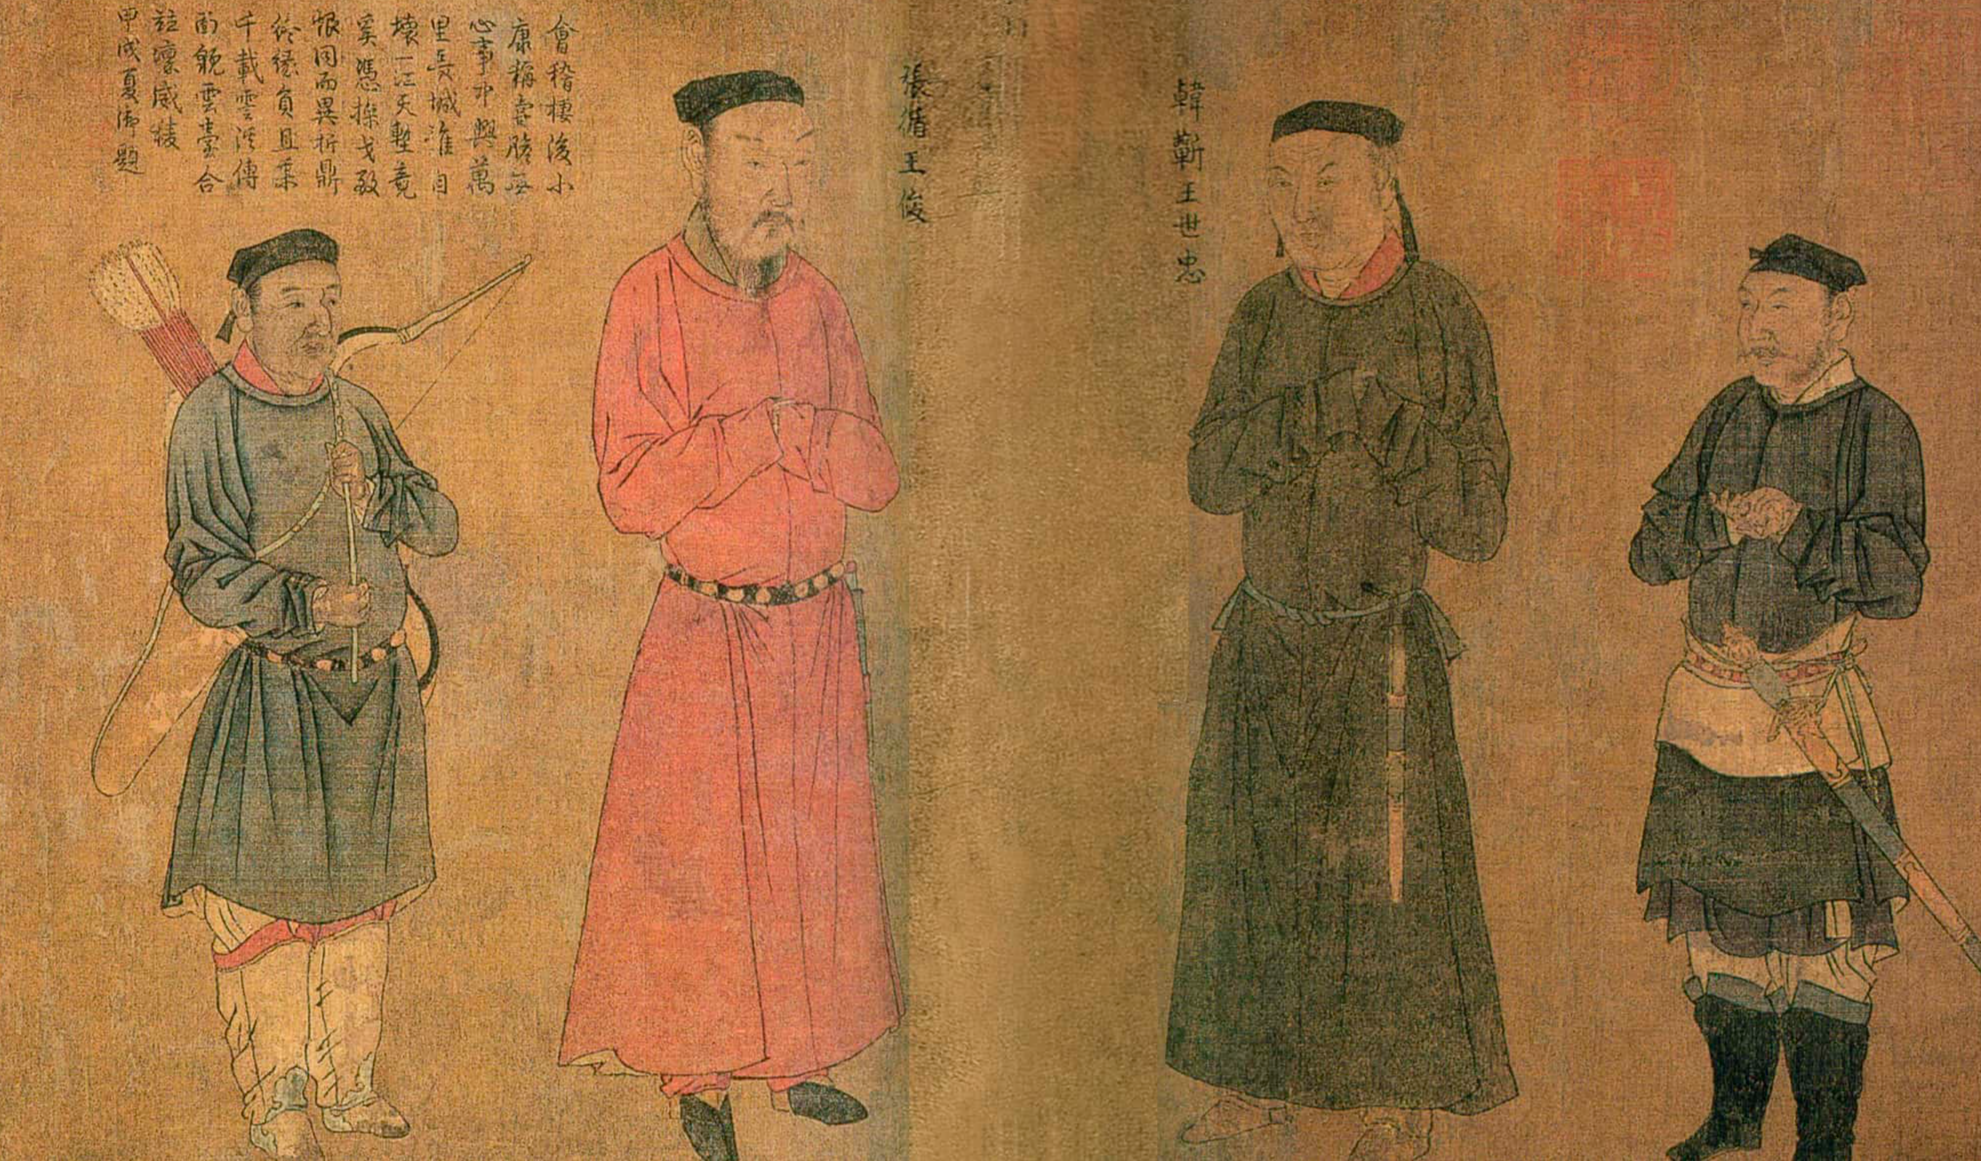 韓蘄王世忠
張循王俊
會稽棲後小
康稱嘗膽無
心事中興萬
里長城誰自
壞一江天塹竟
奚憑操戈
恨同而異折鼎
終負且乘
千載雲溪傳
面貌雲臺合
竝凜威棱
甲戌夏御題